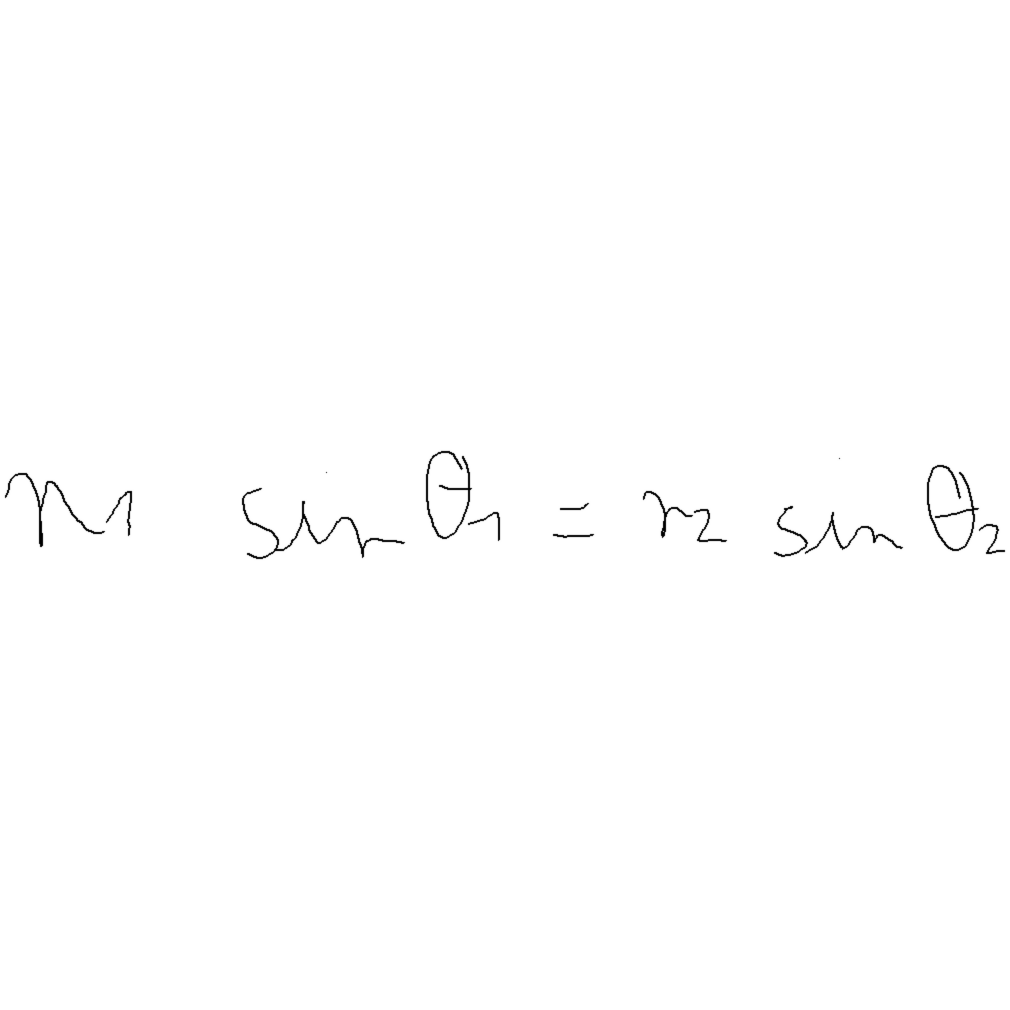 n1 sin θ1 = n2 sin θ2